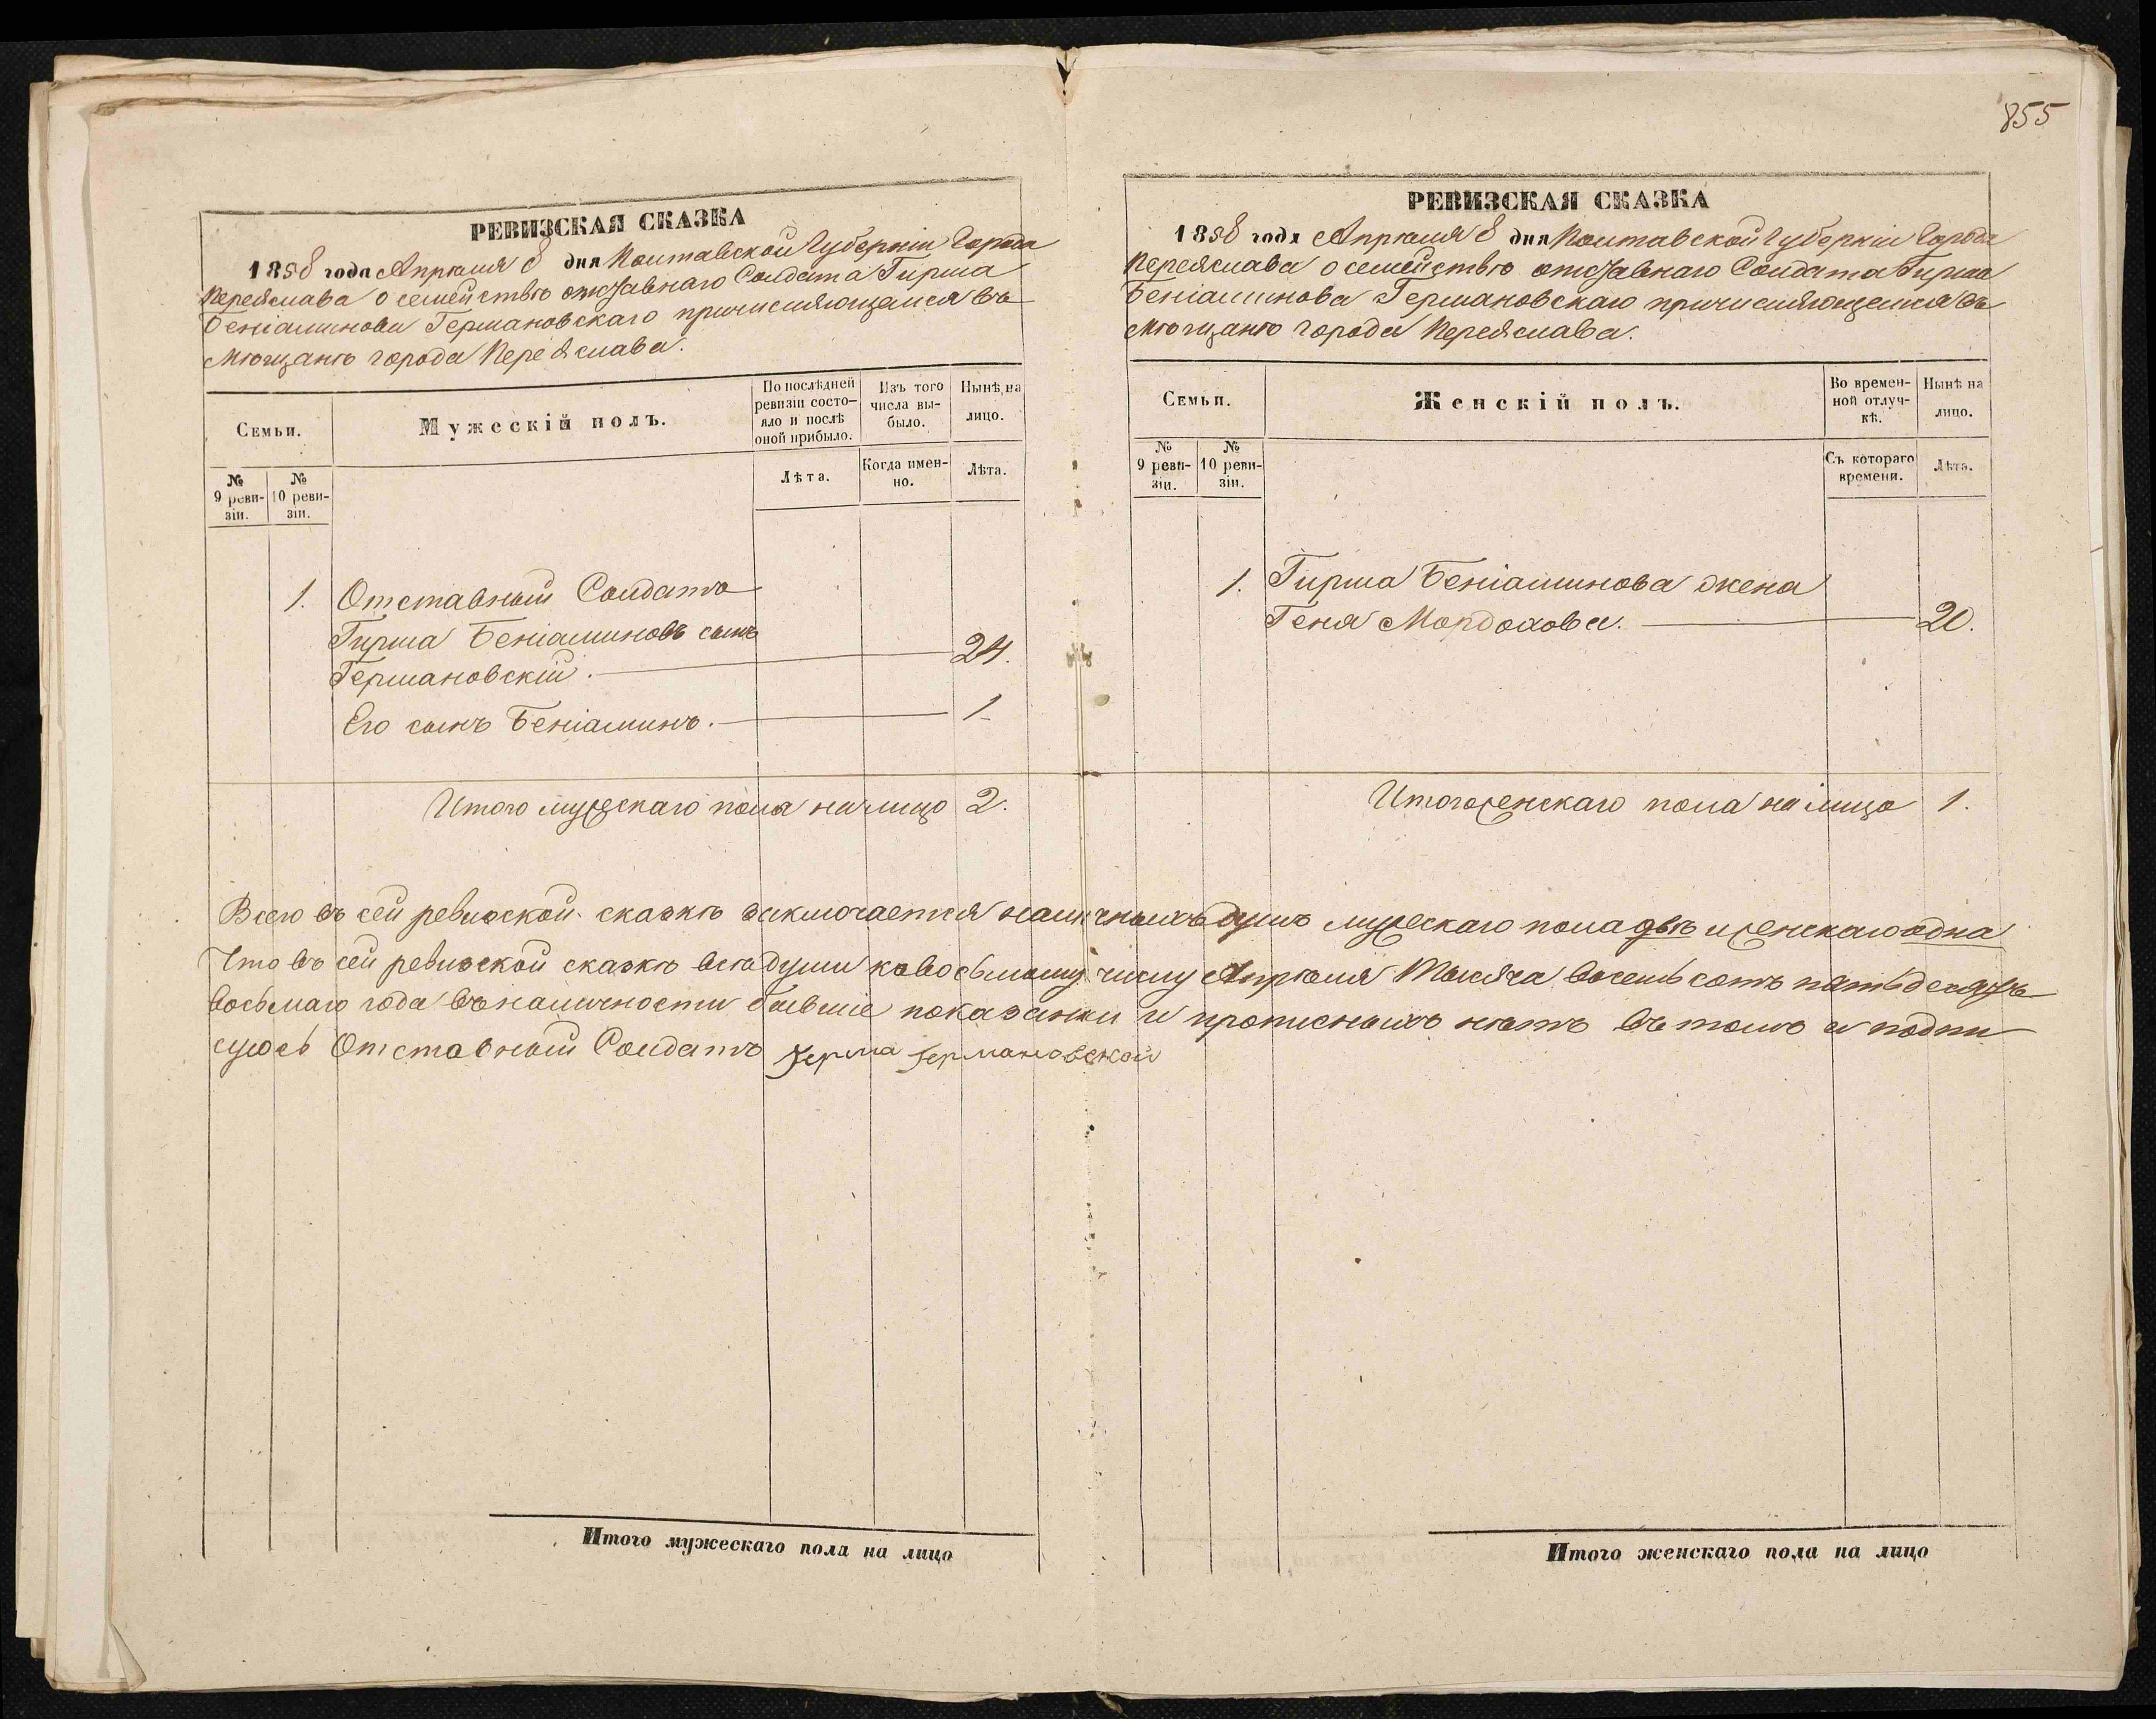 855
РЕВИЗСКАЯ СКАЗКА
1858 года Апрѣля 8 дня Полтавской Губерніи Города
Переяслава о семействѣ отставнаго Солдата Гирша
Беніаминова Германовскаго причисляющагося въ
Мѣщане города Переяслава.
Семьи.
Мужескій полъ.
По послѣдней ревизіи состо-
яло и послѣ оной прибыло.
Изъ того числа вы-
было.
Нынѣ на лицо.
№ 9 реви-
зіи.
№ 10 реви-
зіи.
Лѣта.
Когда имен-
но.
Лѣта.
1. Отставный Солдатъ
Гирша Беніаминовъ сынъ
Германовскій. 24.
Его сынъ Беніаминъ. 1
Итого мужескаго пола на лицо 2.
РЕВИЗСКАЯ СКАЗКА
1858 года Апрѣля 8 дня Полтавской Губерніи Города
Переяслава о семействѣ отставнаго Солдата Гирша
Беніаминова Германовскаго причисляющагося въ
Мѣщане города Переяслава.
Семьи.
Женскій полъ.
Во времен-
ной отлуч-
кѣ.
Нынѣ на лицо.
№ 9 реви-
зіи.
№ 10 реви-
зіи.
Съ котораго времени.
Лѣта.
1. Гирша Беніаминова жена
Геня Мордохова. 20.
Итого женскаго пола на лицо 1.
Всего въ сей ревизской сказкѣ заключается наличныхъ душъ мужескаго пола двѣ и женскаго одна
Что въ сей ревизской сказкѣ всѣ души ко восьмому числу Апрѣля Тысяча восемь сотъ пятьдесятъ
восьмаго года въ наличности бывшіе показаны и прописныхъ нѣтъ въ томъ и подпи
суюсь Отставный Солдатъ Герша Германовской
Итого мужескаго пола на лицо
Итого женскаго пола на лицо